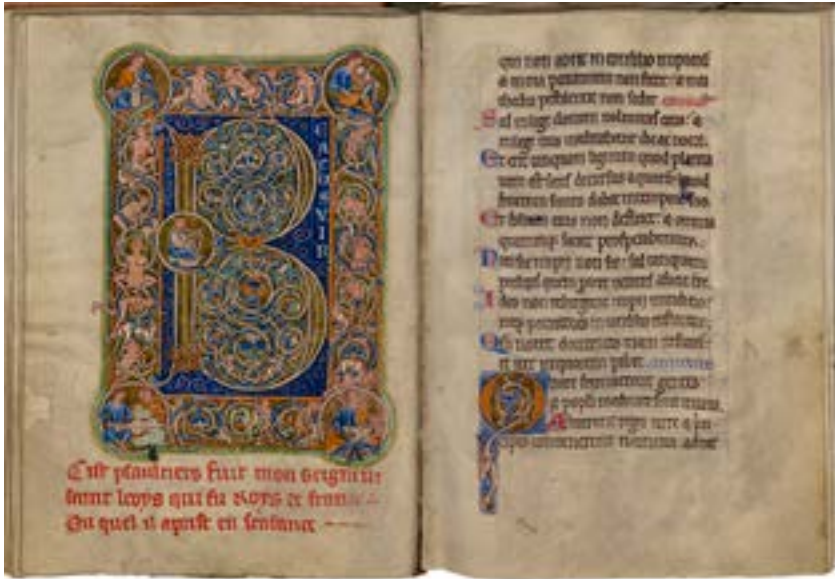 B
EATUS VIR
Cist psaultiers fuit mon seigneur
saint looys qui fu roys de france
Ou quel il aprist en senfance
qui non abiit in consilio impiorum
& in via peccatorum non stetit: & in ca
thedra pestilentie non sedit
Sed in lege domini voluntas eius: &
in lege eius meditabitur die ac nocte.
Et erit tanquam lignum quod planta
tum est secus decursus aquarum quod
fructum suum dabit in tempore suo
Et folium eius non defluet: & omnia
faciet prosperabuntur.
Non sic impii non sic: sed tanquam
pulvis quem a facie
Ideo non resurgent impii in iudicio
peccatores in consilio iustorum
novit viam
et iter impiorum peribit
Quare fremuerunt gentes
& populi meditati sunt inania
Astiterunt reges terre & prin
cipes convenerunt in unum